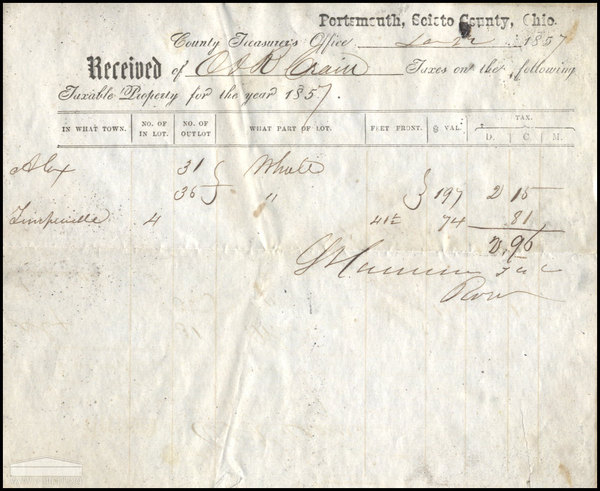 Portsmouth, Scioto County, Ohio.
County Treasurer's Office 1857
Received of O A R Crain Taxes on the following
Taxable Property for the year 1857.
IN WHAT TOWN. NO. OF IN LOT. NO. OF OUTLOT WHAT PART OF LOT. FEET FRONT. $ VAL. TAX. D. C. M.
Alex 31 Whole
36 " 197 2 15
4 74 81
2,96